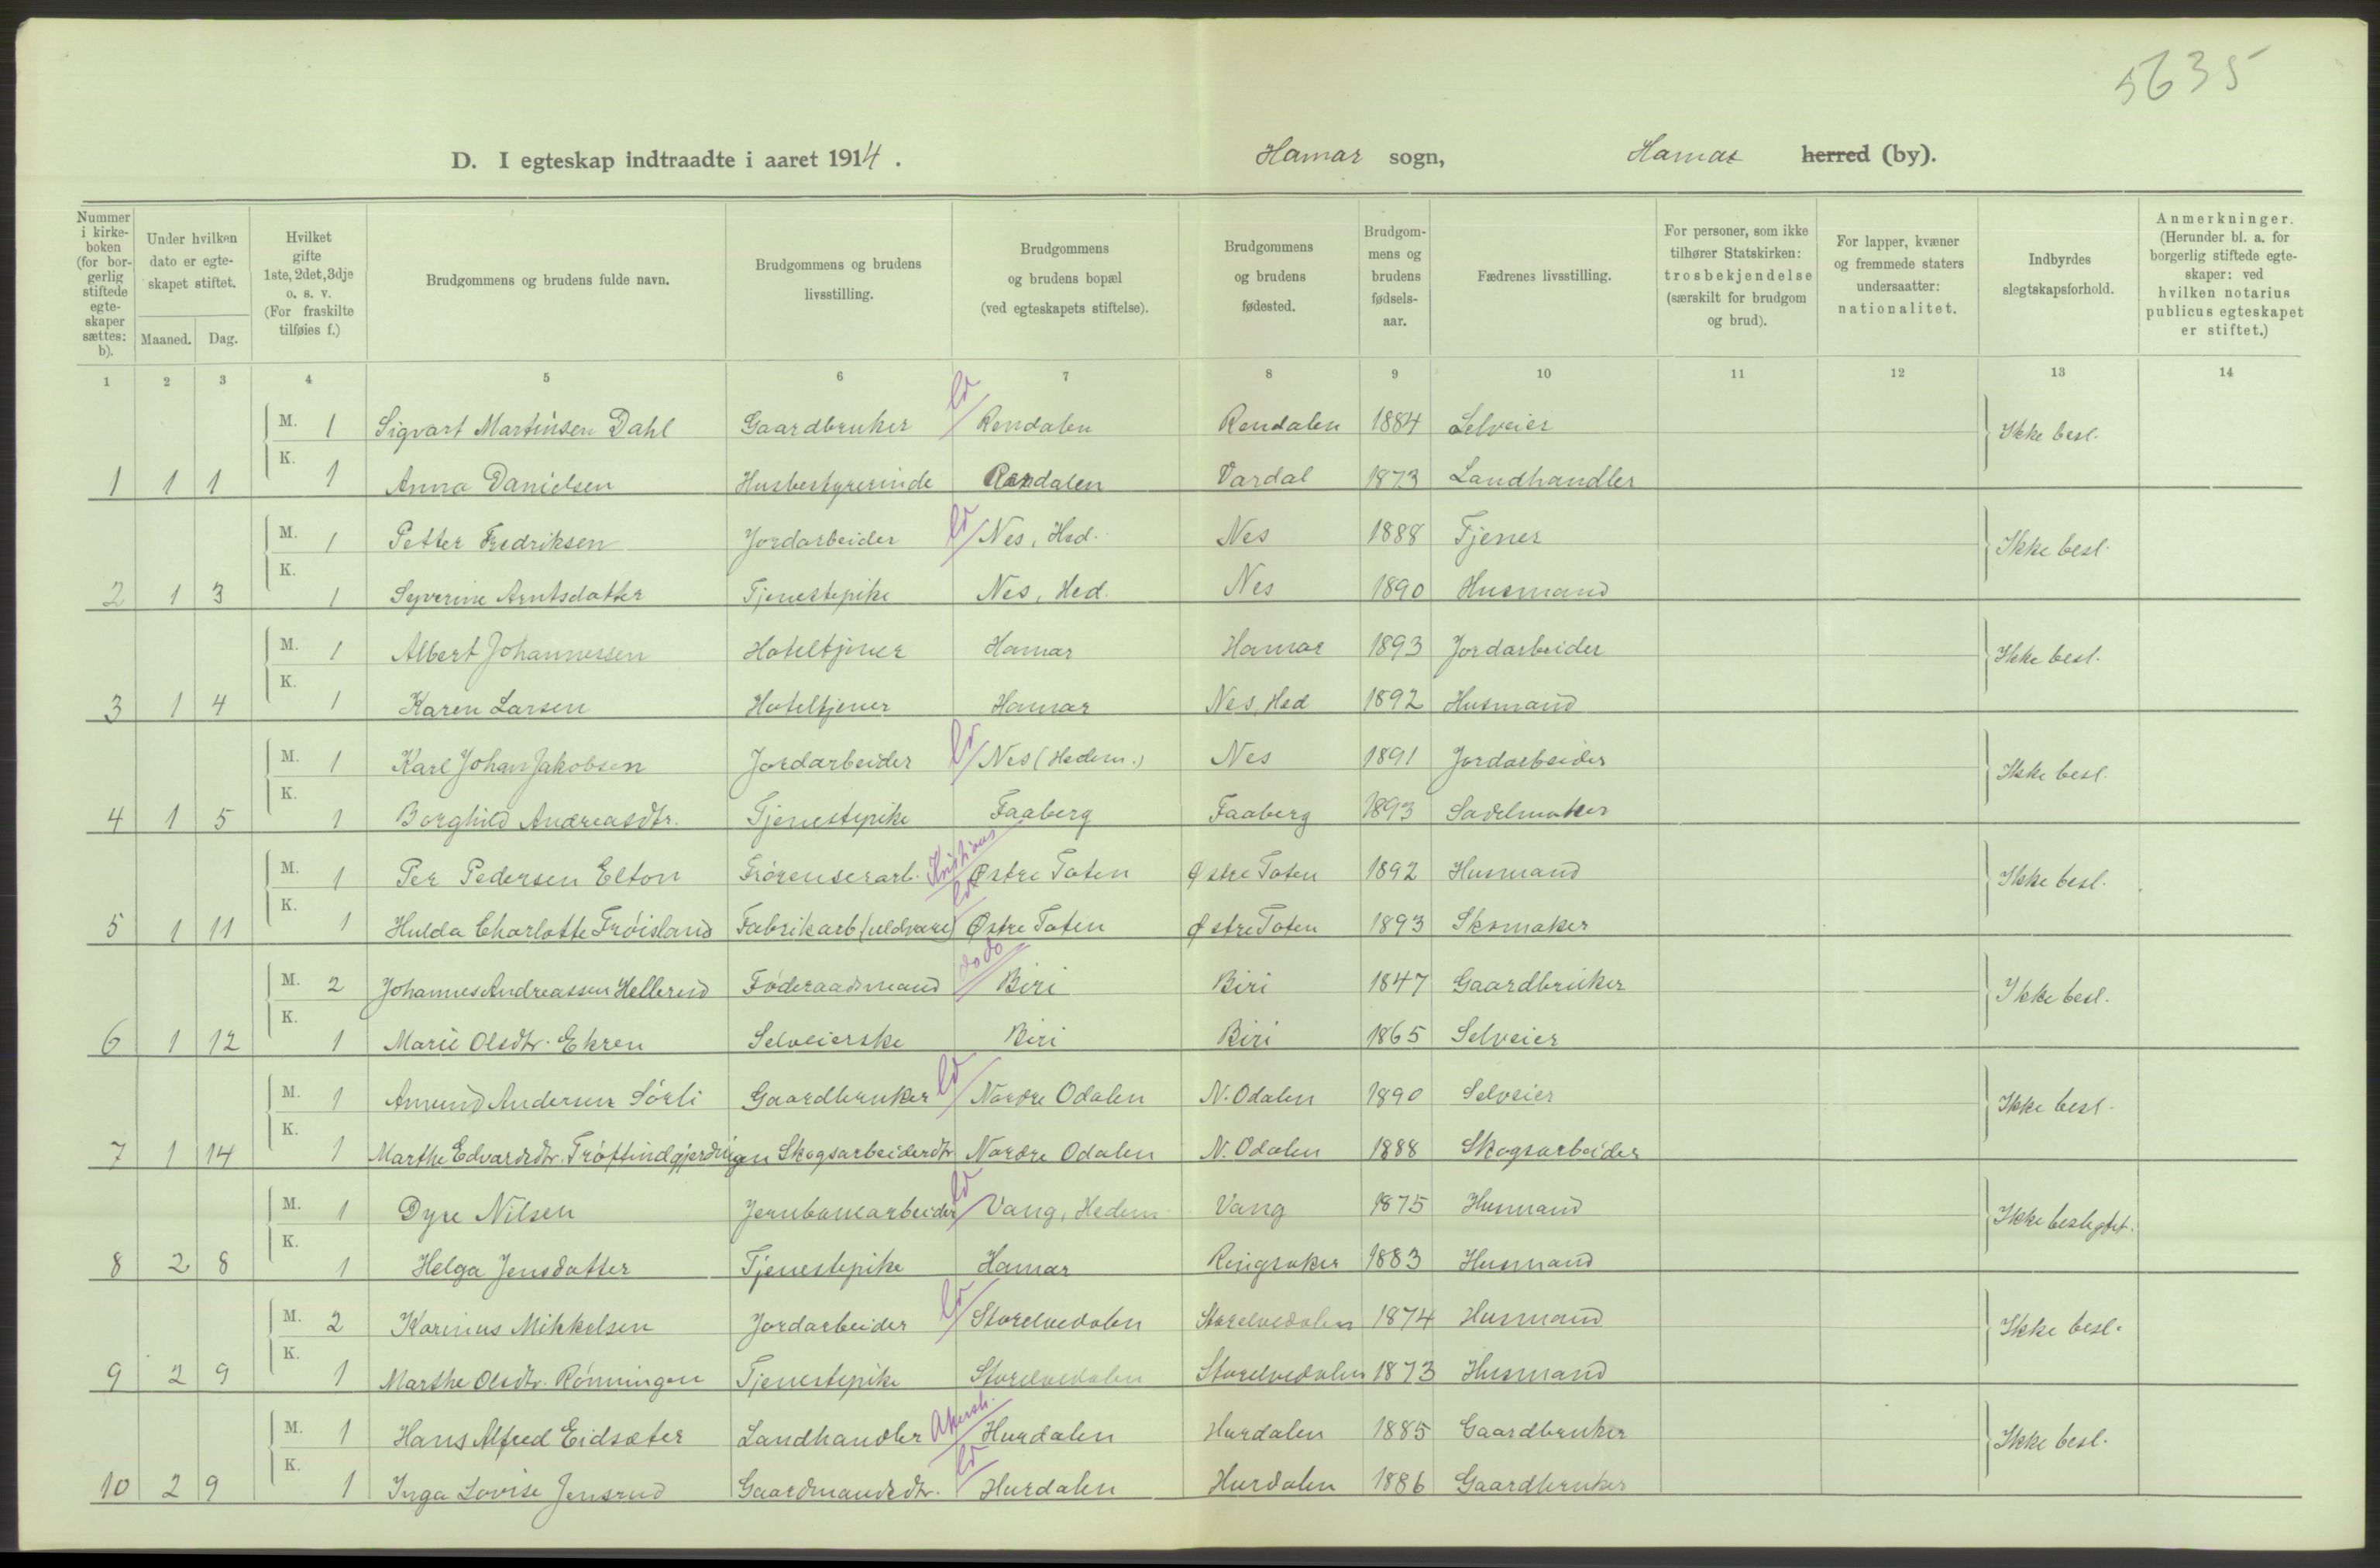 5635
D. I egteskap indtraadte i aaret 1914. Hamar sogn, Hamar herred (by).
Nummer i kirkeboken (for borgerlig stiftede egteskaper sættes: b). Under hvilken dato er egteskapet stiftet. Maaned. Dag. Hvilket gifte 1ste, 2det, 3dje o. s. v. (For fraskilte tilføies f.) Brudgommens og brudens fulde navn. Brudgommens og brudens livsstilling. Brudgommens og brudens bopæl (ved egteskapets stiftelse). Brudgommens og brudens fødested. Brudgommens og brudens fødselsaar. Fædrenes livsstilling. For personer, som ikke tilhører Statskirken: trosbekjendelse (særskilt for brudgom og brud). For lapper, kvæner og fremmede staters undersaatter: nationalitet. Indbyrdes slegtskapsforhold. Anmerkninger. (Herunder bl. a. for borgerlig stiftede egteskaper: ved hvilken notarius publicus egteskapet er stiftet.)
1 2 3 4 5 6 7 8 9 10 11 12 13 14
M. 1 Sigvart Martinsen Dahl Gaardbruker Rendalen Rendalen 1884 Selveier Ikke besl.
1 1 1 K. 1 Anna Danielsen Husbestyrerinde Rendalen Vardal 1873 Landhandler
M. 1 Petter Fredriksen Jordarbeider Nes, Hed. Nes 1888 Tjener Ikke besl.
2 1 3 K. 1 Syverine Arntsdatter Tjenestepike Nes, Hed. Nes 1890 Husmand
M. 1 Albert Johannessen Hoteltjener Hamar Hamar 1893 Jordarbeider Ikke besl.
3 1 4 K. 1 Karen Larsen Hoteltjener Hamar Nes, Hed 1892 Husmand
M. 1 Karl Johan Jakobsen Jordarbeider Nes (Hedem.) Nes 1891 Jordarbeider Ikke besl.
4 1 5 K. 1 Borghild Andreasdtr. Tjenestepike Faaberg Faaberg 1893 Sadelmaker
M. 1 Per Pedersen Elton Kristians Østre Toten Østre Toten 1892 Husmand Ikke besl.
5 1 11 K. 1 Hulda Charlotte Frøisland Fabrikarb (uldvare) Østre Toten Østre Toten 1893 Skomaker
M. 2 Johannes Andreassen Hellerud Føderaadsmand do do Biri Biri 1847 Gaardbruker Ikke besl.
6 1 12 K. 1 Marie Olsdtr. Ekren Selveierske Biri Biri 1865 Selveier
M. 1 Amund Andersen Sørli Gaardbruker Nordre Odalen N. Odalen 1890 Selveier Ikke besl.
7 1 14 K. 1 Marthe Edvardsdtr. Skogsarbeiderdtr Nordre Odalen N. Odalen 1888 Skogsarbeider
M. 1 Dyre Nilsen Jernbanearbeider Vang, Hedem. Vang 1875 Husmand Ikke beslegtet.
8 2 8 K. 1 Helga Jensdatter Tjenestepike Hamar Ringsaker 1883 Husmand
M. 2 Karinus Mikkelsen Jordarbeider Storelvedalen Storelvedalen 1874 Husmand Ikke besl.
9 2 9 K. 1 Marthe Olsdtr. Rønningen Tjenestepike Storelvedalen Storelvedalen 1873 Husmand
M. 1 Hans Alfred Eidsæter Landhandler Akersh. Hurdalen Hurdalen 1885 Gaardbruker Ikke besl.
10 2 9 K. 1 Inga Lovise Jensrud Gaardmandsdtr. Hurdalen Hurdalen 1886 Gaardbruker